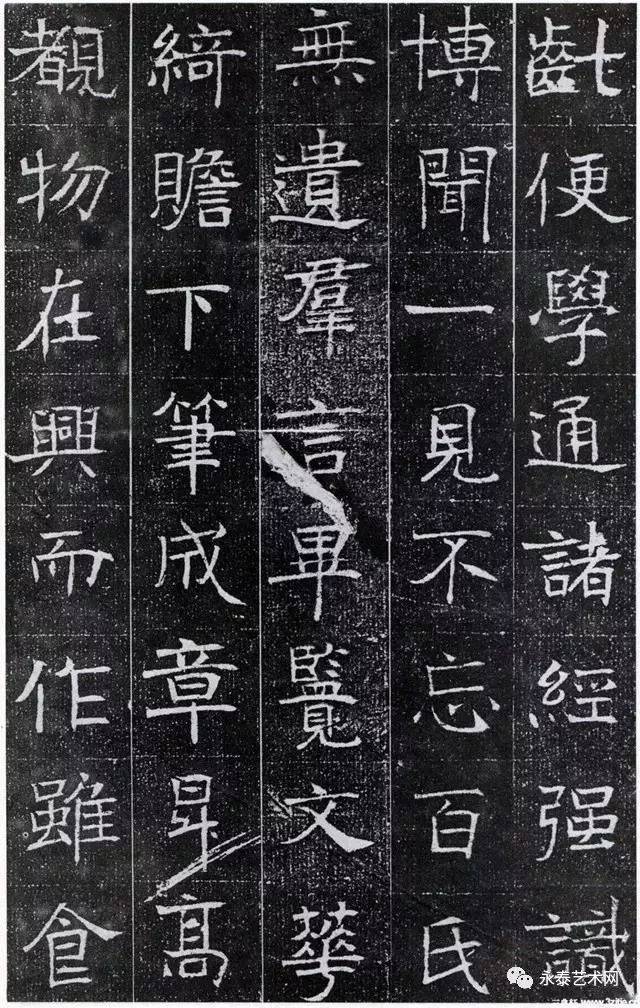 齔便學通諸經强識
博聞一見不忘百氏
無遺羣言畢覽文華
綺贍下筆成章昇高
覩物在興而作雖食
永泰艺术网